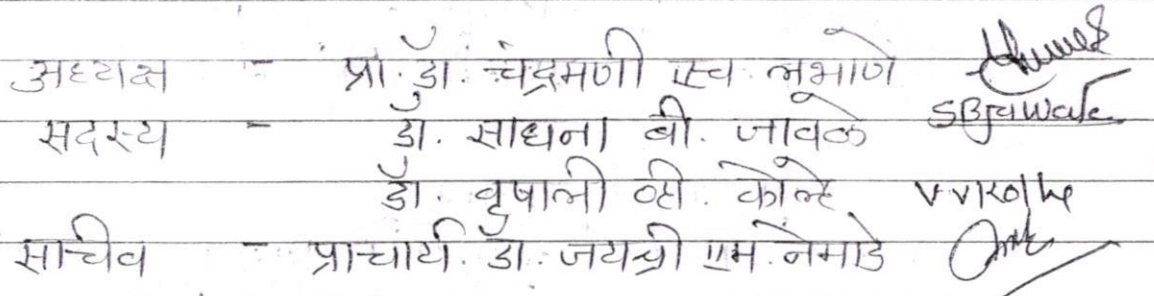 अध्यक्ष - प्रा. डॉ. चंद्रमणी एच लभाणे
सदस्य - डॉ. साधना बी. जावळे SBJawale
डॉ. वृषाली व्ही. कोल्हे V V Kolhe
सचिव - प्राचार्य. डॉ. जयश्री एम. नेमाडे